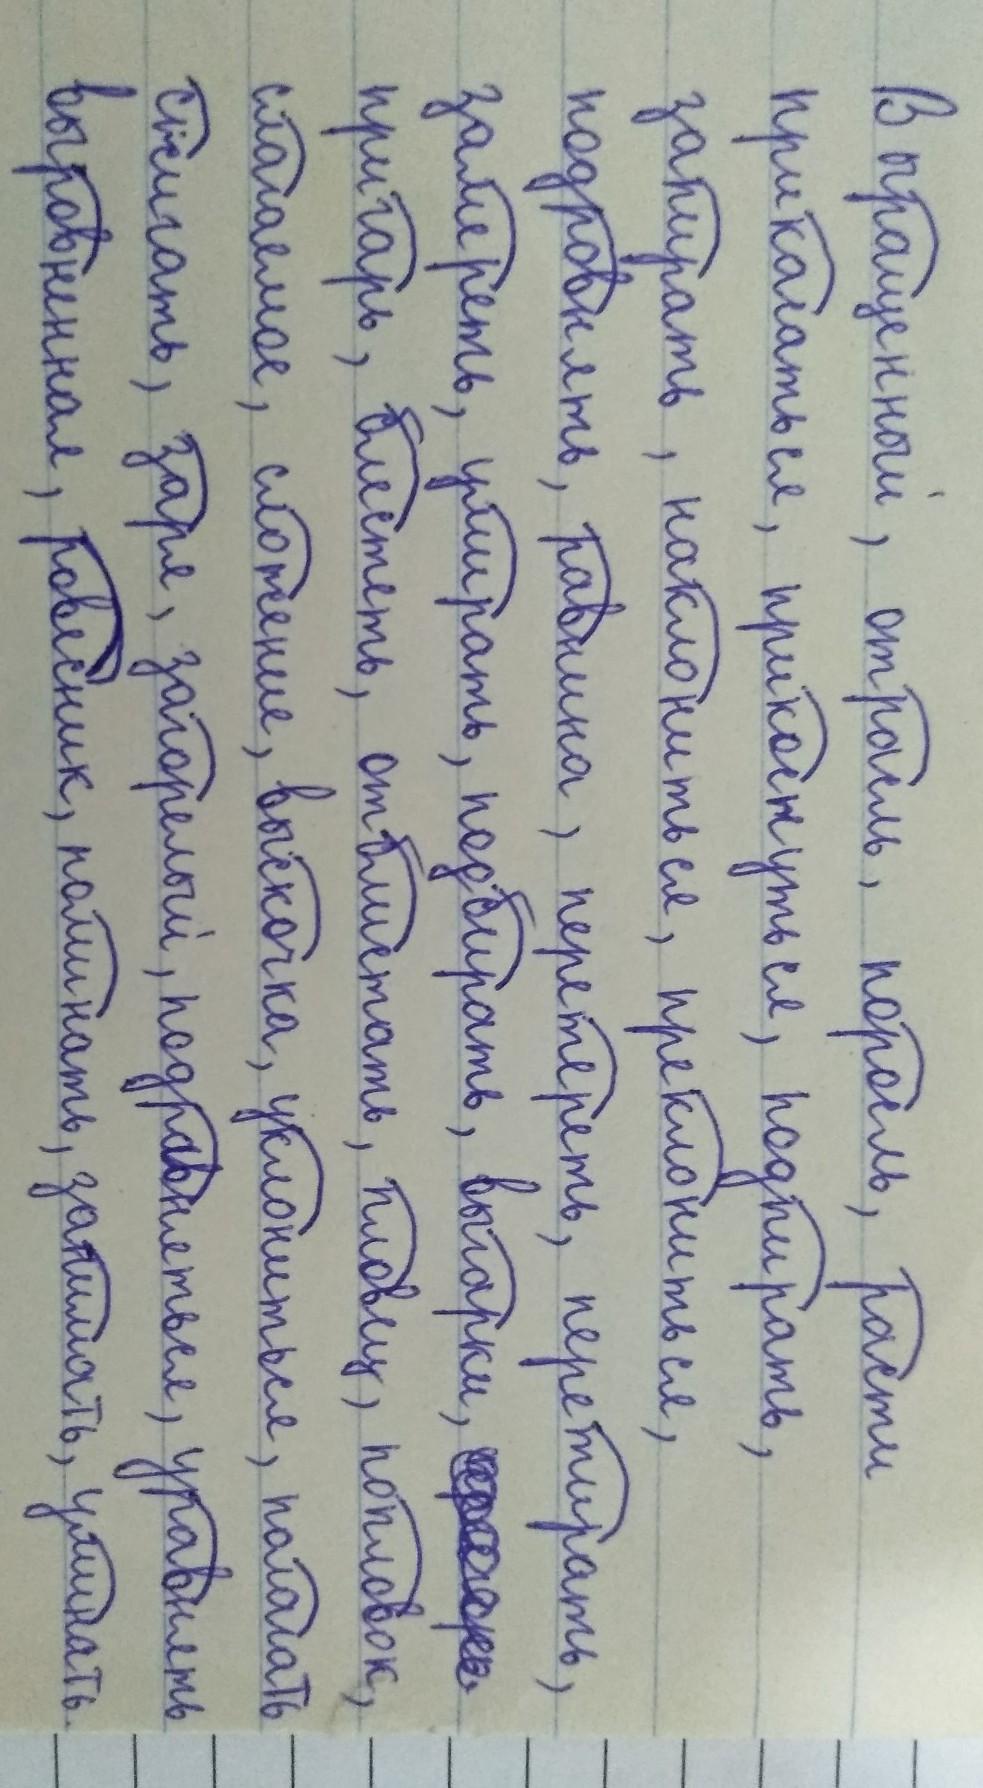 Выращенный, отрасль, поросль, расти
прикасаться, прикоснуться, подпирать,
запирать, наклониться, преклониться,
подровнять, равнина, перетереть, перетирать,
замереть, умирать, подбирать, выгарки,
пригарь, блестеть, отблистать, пловец, поплавок,
слагаемое, сложение, выскочка, уклониться, полагать
сжигать, заря, загорелый, подравняться, уравнять
выровненная, ровесник, поминать, занимать, уминать.